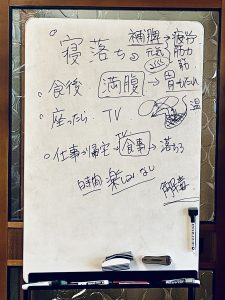 寝落ち
補脾→疲労
元気 筋力
・食後 満腹→胃もたれ
・座ったら TV
温
・仕事→帰宅→食事→落ちる
時間 楽しくない